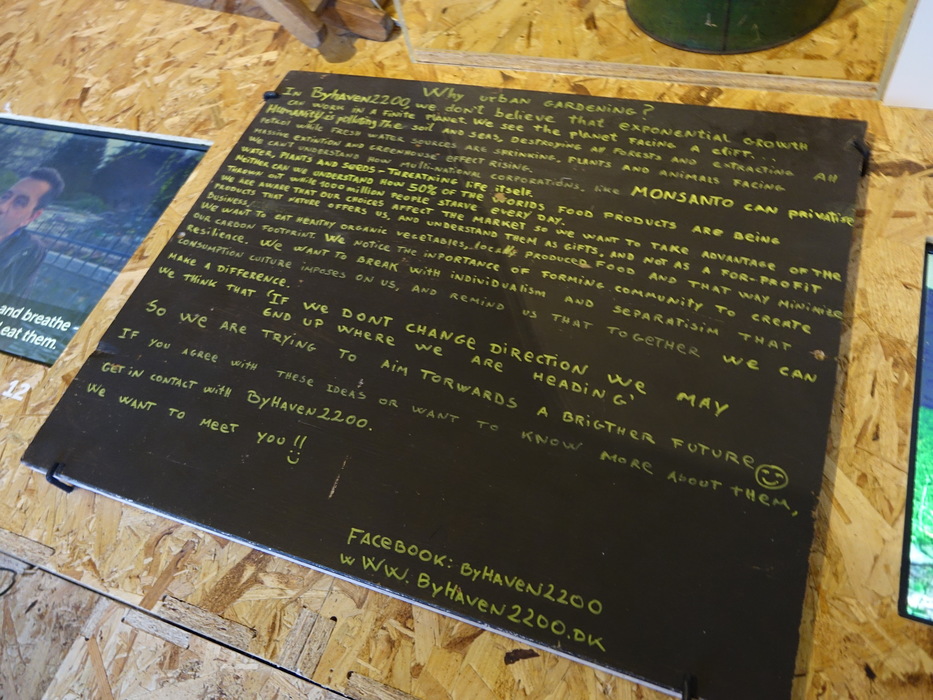 and breathe -
eat them.
12
Why urban GARDENING?
In Byhaven2200, we don't believe that exponential growth
can work in a finite planet. We see the planet facing a cliff...
Humanity is polluting the soil and seas, destroying forests and extracting all
petrol while fresh water sources are shrinking. Plants and animals facing
massive extintion and greenhouse effect rising.
We can't understand how multinational corporations, like MONSANTO can privatise
water, plants and seeds - threatning life itself.
Neither can we understand how 50% of the worlds food products are being
thrown out while 1000 million people starve every day.
We are aware that our choices affect the market so we want to take advantage of the
products that nature offers us, and understand them as gifts, and not as a for-profit
business.
We want to eat healthy organic vegetables, locally produced food and that way minimise
our carbon footprint. We notice the importance of forming community to create
resilience. We want to break with individualism and separatism that
consumption culture imposes on us, and remind us that together we can
make a difference.
We think that 'If we dont change direction we may
end up where we are heading'
So we are trying to aim torwards a brigther future
If you agree with these ideas or want to know more about them,
get in contact with ByHaven2200.
We want to meet you!!
Facebook: ByHaven2200
www.ByHaven2200.dk